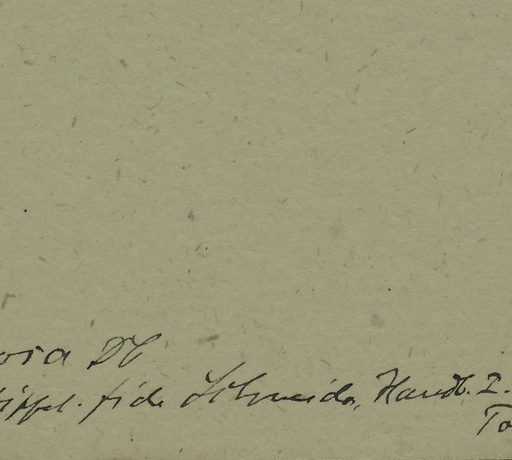 osa DC
Zippel. fide Schneider, Handb. I.
To